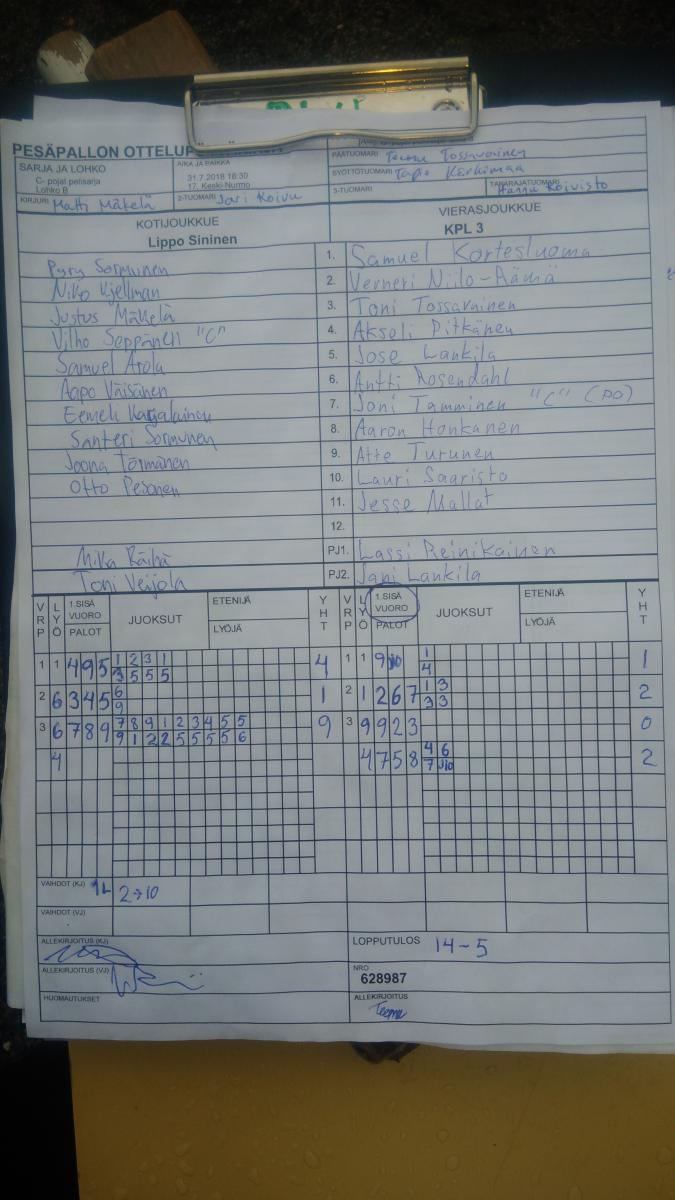 PESÄPALLON
SARJA JA LOHKO
C- pojat pelisarja
Lohko B
AIKA JA PAIKKA
31.7.2018 18:30
17. Keski-Nurmo
PÄÄTUOMARI Teemu Tossavainen
SYÖTTÖTUOMARI Tapio Kärkimaa
KIRJURI Matti Mäkelä
2-TUOMARI Jari Koivu
3-TUOMARI
TAKARAJATUOMARI Hannu Koivisto
KOTIJOUKKUE
Lippo Sininen
VIERASJOUKKUE
KPL 3
Pyry Sormunen 1. Samuel Kortesluoma
Niko Kjellman 2. Verneri Niilo-Rämä
Justus Mäkelä 3. Toni Tossavainen
Vilho Seppänen "C" 4. Akseli Pitkänen
Samuel Arola 5. Jose Lankila
Aapo Väisänen 6. Antti Rosendahl
Eemeli Karjalainen 7. Joni Tamminen "C" (PO)
Santeri Sormunen 8. Aaron Honkanen
Joona Törmänen 9. Atte Turunen
Otto Pesonen 10. Lauri Saaristo
11. Jesse Mallat
12.
Mika Räihä PJ1. Lassi Reinikainen
Toni Veijola PJ2. Jani Lankila
VRP LYÖ 1.SISÄ VUORO PALOT JUOKSUT ETENIJÄ LYÖJÄ YHT VRP LYÖ 1.SISÄ VUORO PALOT JUOKSUT ETENIJÄ LYÖJÄ YHT
1 1 4 9 5 1 2 3 1 4 1 1 9 J10 1 1
3 5 5 5 4
2 6 3 4 5 6 1 2 1 2 6 7 1 3 2
9 3 3
3 6 7 8 9 7 8 9 1 2 3 4 5 5 9 3 9 9 2 3 0
9 1 2 2 5 5 5 5 6
4 4 7 5 8 4 6 2
7 J10
VAIHDOT (KJ) 1L 2→10
VAIHDOT (VJ)
ALLEKIRJOITUS (KJ)
LOPPUTULOS 14-5
ALLEKIRJOITUS (VJ)
NRO
628987
HUOMAUTUKSET
ALLEKIRJOITUS
Teemu